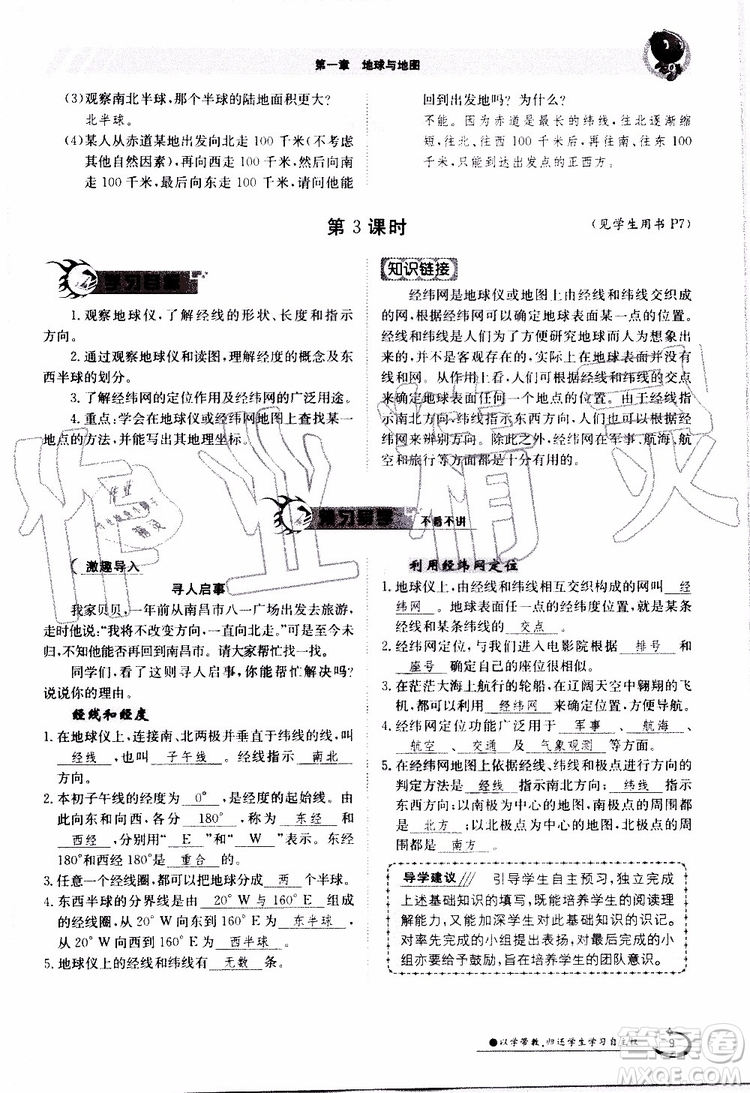 第一章 地球与地图
(3)观察南北半球，那个半球的陆地面积更大?
北半球。
(4)某人从赤道某地出发向北走 100 千米(不考虑
其他自然因素)，再向西走 100 千米，然后向南
走 100 千米，最后向东走 100 千米，请问他能
回到出发地吗? 为什么?
不能。因为赤道是最长的纬线，往北逐渐缩
短，往北、往西 100 千米后，再往南、往东 100
千米，会走到出发点的正西方。
第 3 课时
(见学生用书 P7)
学习目标
1. 观察地球仪，了解经线的形状、长度和指示
方向。
2. 通过观察地球仪和读图，理解经度的概念及东
西半球的划分。
3. 了解经纬网的定位作用及经纬网的广泛用途。
4. 重点：学会在地球仪或经纬网地图上查找某一
地点的方法，并能写出其地理坐标。
知识链接
经纬网是地球仪或地图上由经线和纬线交织成
的网，根据经纬网可以确定地球表面某一点的位置。
经线和纬线是人们为了方便研究地球而人为想象出
来的，并不是客观存在的，实际上在地球表面并没有
经线和纬线。人们可以根据经线和纬线的交点
来确定地球表面任何一个地点的位置。由于经线
指示南北方向，纬线指示东西方向，人们还可以根据
经纬网来判断方向。除此之外，经纬网在军事、航海、航
空和旅行等方面都是十分有用的。
预习导学
不看不讲
激趣导入
寻人启事
我家贝贝，一年前从南昌市八一广场出发去旅游，
走时他说：“我将不改变方向，一直向北走。”可是至今未
归，不知他能否再回到南昌市。请大家帮忙找一找。
同学们，看了这则寻人启事，你能帮忙解决吗?
说说你的理由。
经线和经度
1. 在地球仪上，连接南、北两极并垂直于纬线的线叫
经线，也叫 子午线。经线指示 南北
方向。
2. 本初子午线的经度为 0°，是经度的起始线。由
此向东和向西，各分 180°，称为 东经 和
西经，分别用“ E ”和“ W ”表示。东经
180°和西经 180°是 重合 的。
3. 任意一个经线圈，均可将地球分成 两 个半球。
4. 东西半球的分界线是由 20°W 和 160°E 组成
的经线圈，从 20°W 向东到 160°E 为 东半球，
从 20°W 向西到 160°E 为 西半球。
5. 地球仪上的经线和纬线有 无数 条。
利用经纬网定位
1. 地球仪上，由经线和纬线相互交织构成的网叫 经
纬网。地球表面任一点的经纬度位置，就是某条
经线和某条纬线的 交点。
2. 经纬网定位，与我们进入电影院根据 排号 和
座号 确定自己的座位很相似。
3. 在茫茫大海上航行的轮船，在辽阔天空中翱翔的飞
机，都用 经纬网 来确定位置、方便导航。
4. 经纬网定位功能广泛用于 军事、航海、
航空、交通 及 气象观测 等方面。
5. 在经纬网地图上依据经线、纬线和极点进行方向的
判定方法是：经线 指示南北方向；纬线 指示
东西方向；以南极为中心的地图，南极点的周围都
是 北方；以北极为中心的地图，北极点的周围都
是 南方。
导学建议 引导学生自主预习，独立完成
上述基础知识的填写，既能培养学生的阅读理
解能力，又能加深学生对此基础知识的识记。
对率先完成的小组提出表扬，对最后完成的小
组亦要给予鼓励，旨在培养学生的团队意识。
●以学带教，归还学生学习自主权
9
作业精灵